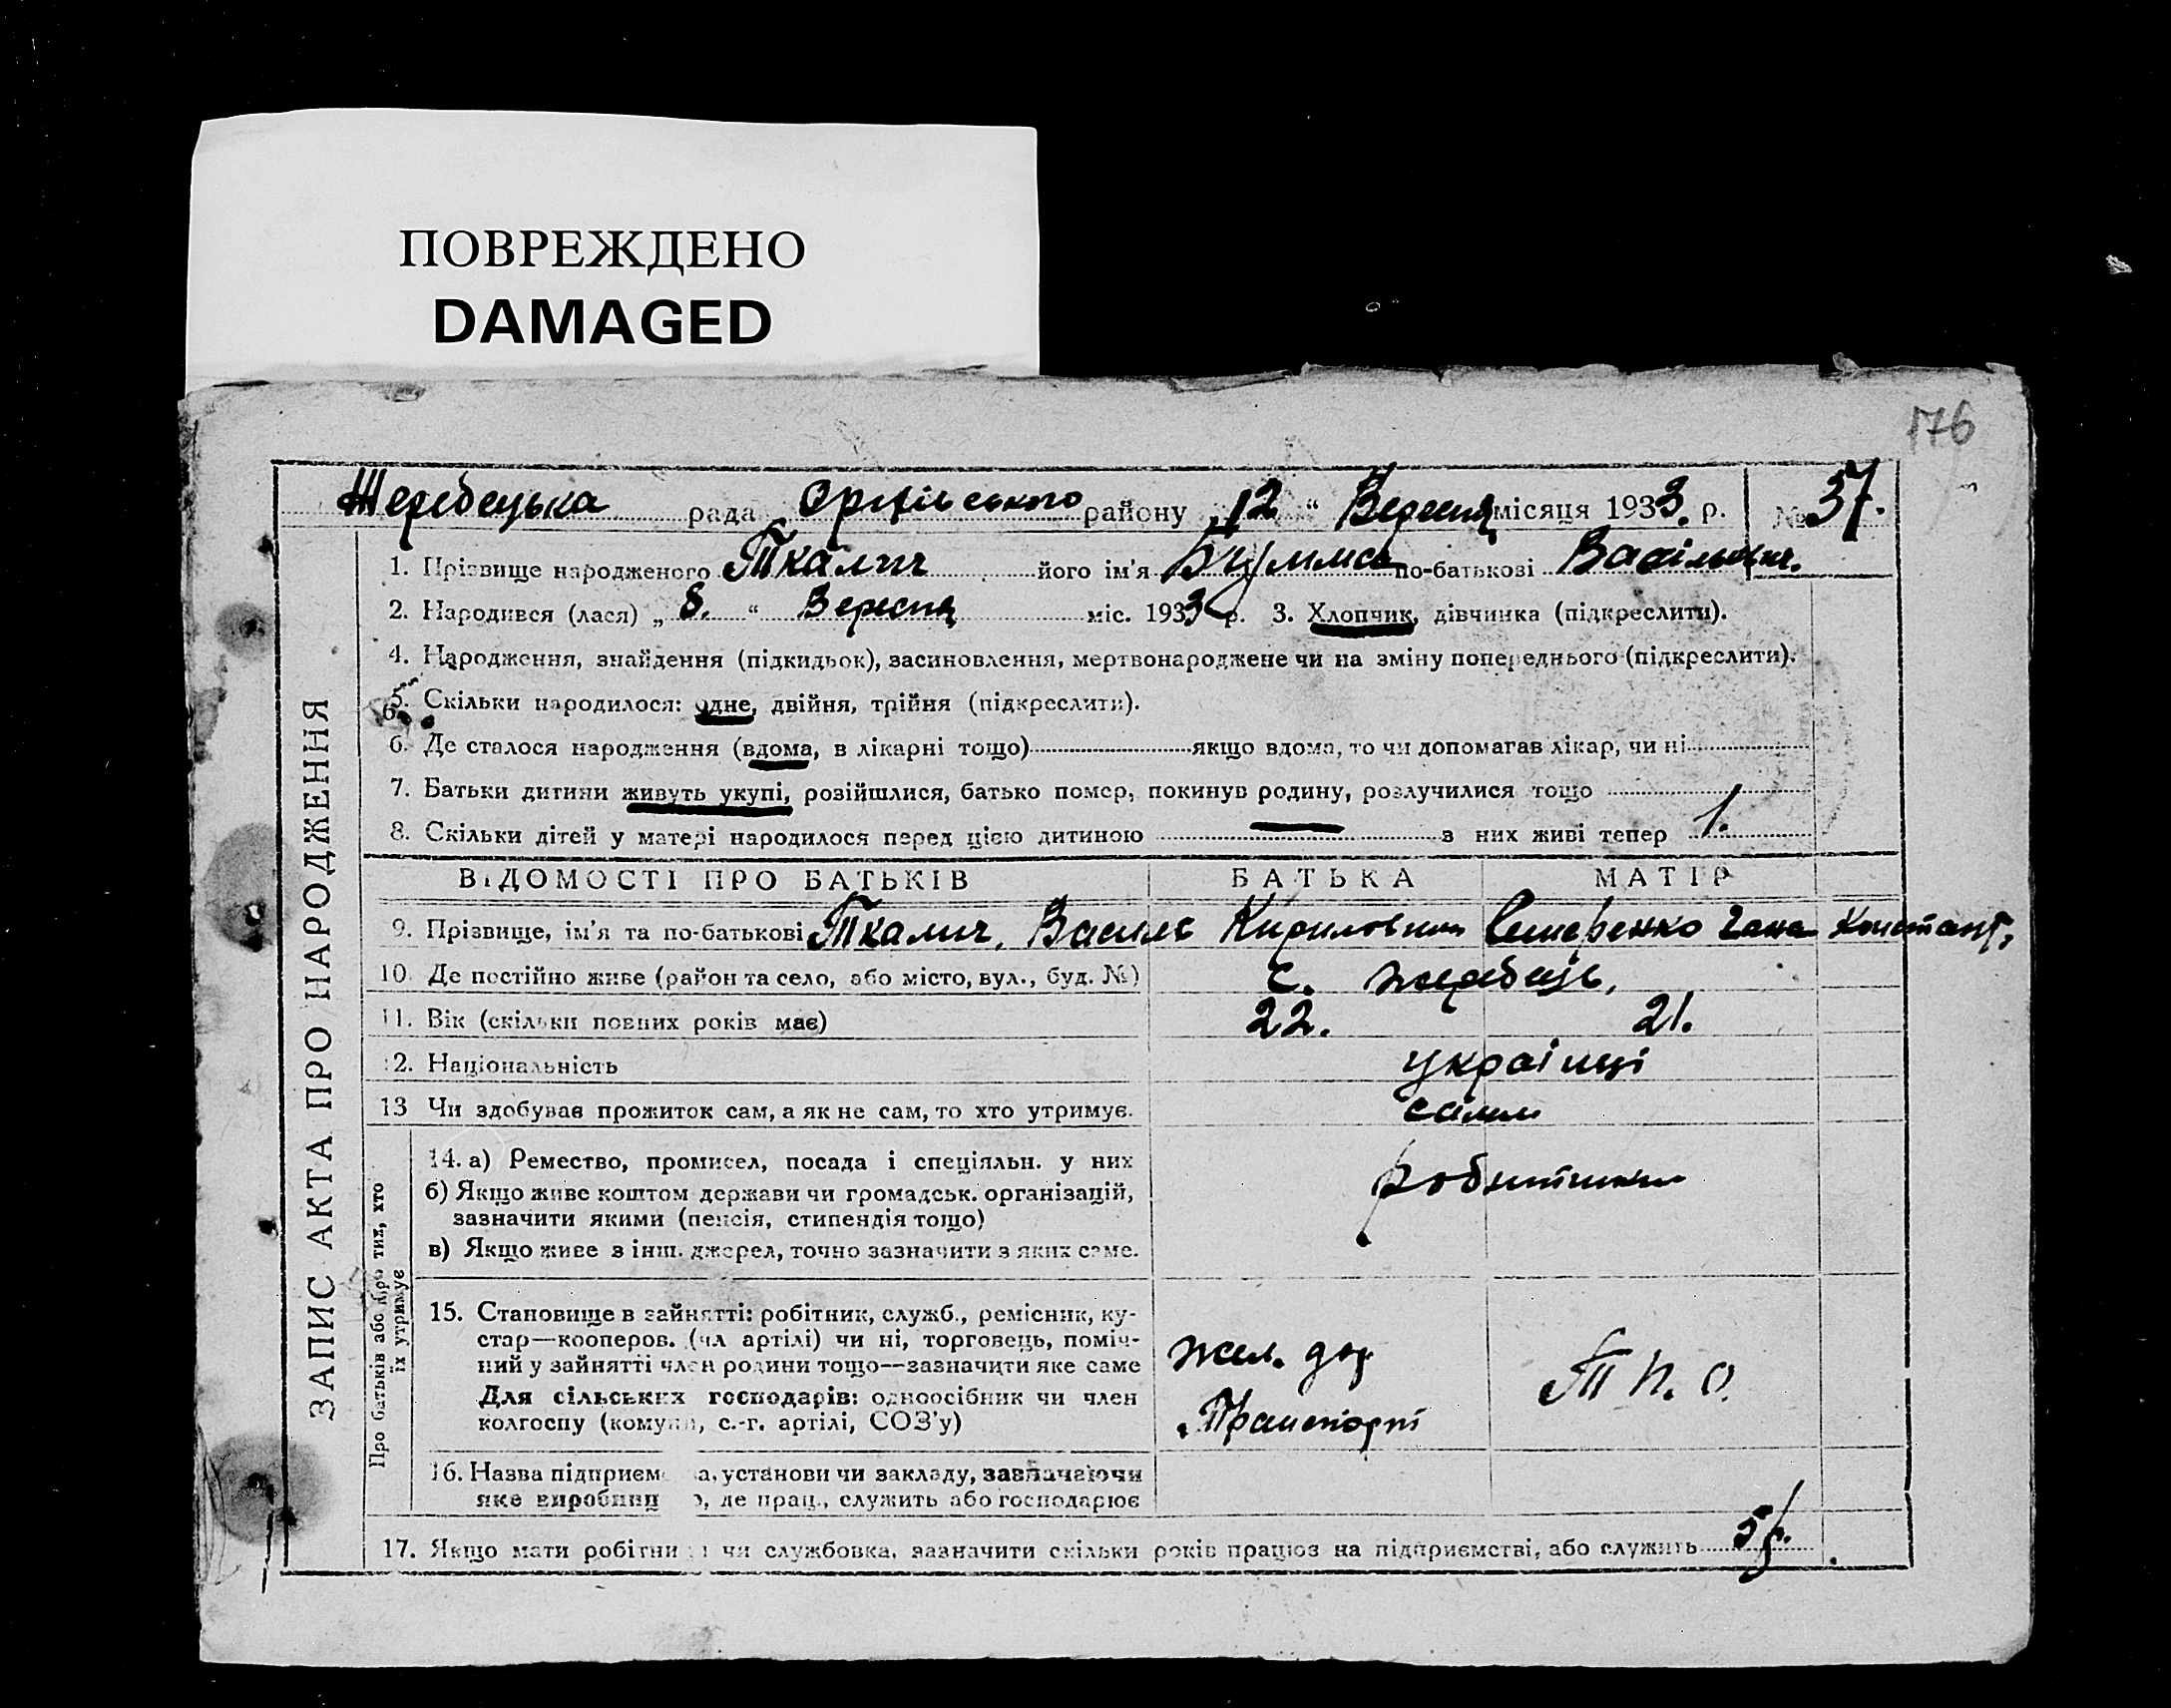 ПОВРЕЖДЕНО
DAMAGED
176
Жеребецька рада Оріхівського району „12“ Вересня місяця 1933. р. № 37.
1. Прізвище народженого Ткалич його ім'я по-батькові Васільович.
2. Народився (лася) „8.“ Вересня міс. 1933 р. 3. Хлопчик, дівчинка (підкреслити).
4. Народження, знайдення (підкидьок), засиновлення, мертвонароджене чи на зміну попереднього (підкреслити).
5. Скільки народилося: одне, двійня, трійня (підкреслити).
6. Де сталося народження (вдома, в лікарні тощо) якщо вдома, то чи допомагав лікар, чи ні
7. Батьки дитини живуть укупі, розійшлися, батько помер, покинув родину, розлучилися тощо
8. Скільки дітей у матері народилося перед цією дитиною — з них живі тепер 1.
ВІДОМОСТІ ПРО БАТЬКІВ БАТЬКА МАТІР
9. Прізвище, ім'я та по-батькові Ткалич, Василь Кирилович Гана Констант.
10. Де постійно живе (район та село, або місто, вул., буд. №) с. Жеребець.
11. Вік (скільки повних років має) 22. 21.
12. Національність українці
13 Чи здобував прожиток сам, а як не сам, то хто утримує. сами
14. а) Ремество, промисел, посада і спеціяльн. у них робітники
б) Якщо живе коштом держави чи громадськ. організацій,
зазначити якими (пенсія, стипендія тощо)
в) Якщо живе з інш. джерел, точно зазначити з яких саме.
15. Становище в зайнятті: робітник, служб., ремісник, ку-
стар—кооперов. (чл артілі) чи ні, торговець, поміч-
ний у зайнятті член родини тощо—зазначити яке саме
Для сільських господарів: одноосібник чи член
колгоспу (комуни, с.-г. артілі, СОЗ'у)
жел. дор
Транспорті
Т П. О.
16. Назва підприєм а, установи чи закладу, зазначаючи
яке виробниц о, де прац., служить або господарює
17. Якщо мати робітни чи службовка, зазначити скільки років працює на підприємстві, або служить 5 р.
ЗАПИС АКТА ПРО НАРОДЖЕННЯ
Про батьків або про тих, хто
їх утримує